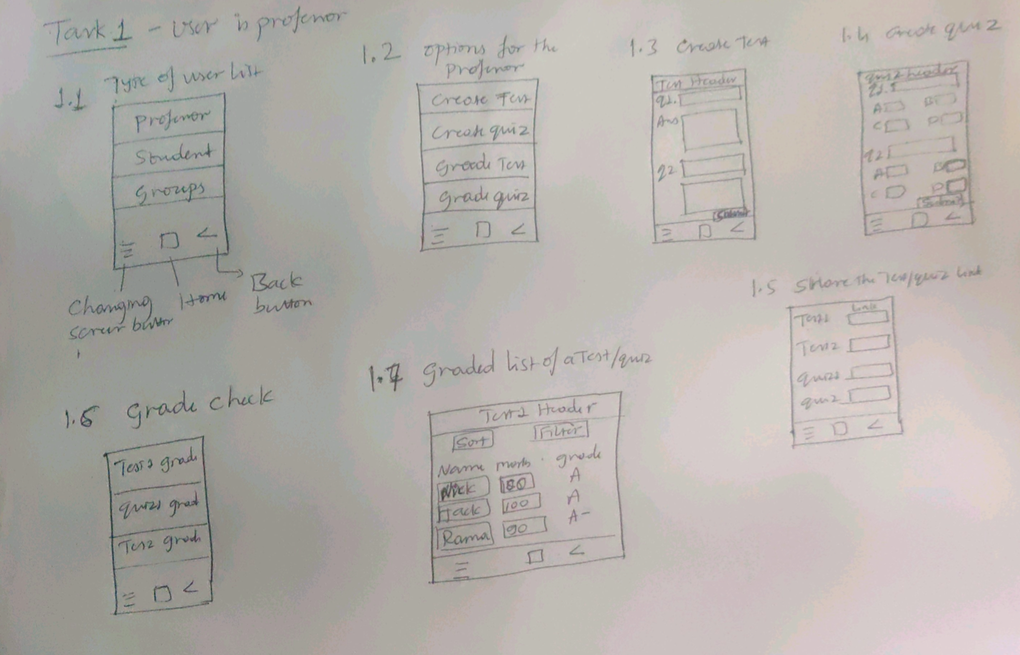 Task 1 - User is professor
1.1 Type of user list
Professor
Student
Groups
Changing
screen button
Home
Back
button
1.2 options for the
Professor
Create Test
Create quiz
Grade Test
Grade quiz
1.3 Create Test
Test Header
q1.
Ans
q2
Submit
1.4 Create quiz
quiz header
q1.
A
B
C
D
q2
A
B
C
D
Submit
1.5 Share the Test/quiz link
Link
Test1
Test2
quiz1
quiz2
1.6 Grade check
Test1 grade
quiz1 grade
Test2 grade
1.7 Graded list of a Test/quiz
Test1 Header
Sort
Filter
Name marks grade
Nick 100 A
Jack 100 A
Rama 90 A-